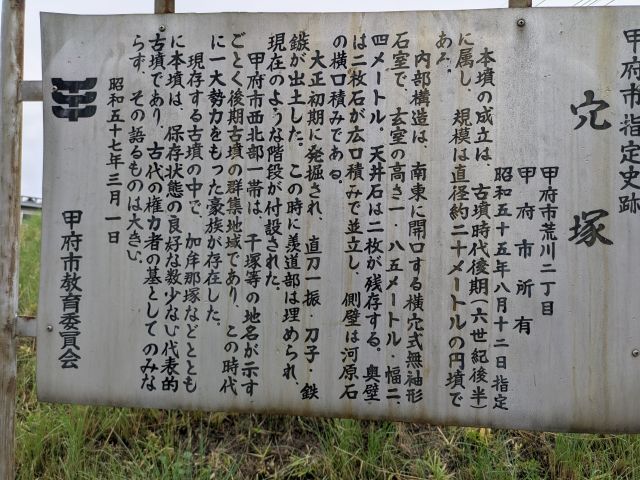 甲府市指定史跡
穴塚
甲府市荒川二丁目
甲府市所有
昭和五十五年八月十二日指定
本墳の成立は、古墳時代後期(六世紀後半)
に属し、規模は直径約二十メートルの円墳で
ある。
内部構造は、南東に開口する横穴式無袖形
石室で、玄室の高さ一・八五メートル・幅二、
四メートル。天井石は二枚が残存する。奥壁
は二枚石が広口積みで並立し、側壁は河原石
の横口積みである。
大正初期に発掘され、直刀一振・刀子・鉄
鏃が出土した。この時に羨道部は埋められ、
現在のような階段が付設された。
甲府市西北部一帯は、千塚等の地名が示す
ごとく後期古墳の群集地域であり、この時代
に一大勢力をもった豪族が存在した。
現存する古墳の中で、加牟那塚などととも
に本墳は、保存状態の良好な数少ない代表的
古墳であり、古代の権力者の墓としてのみな
らず、その語るものは大きい。
昭和五十七年三月一日
甲府市教育委員会